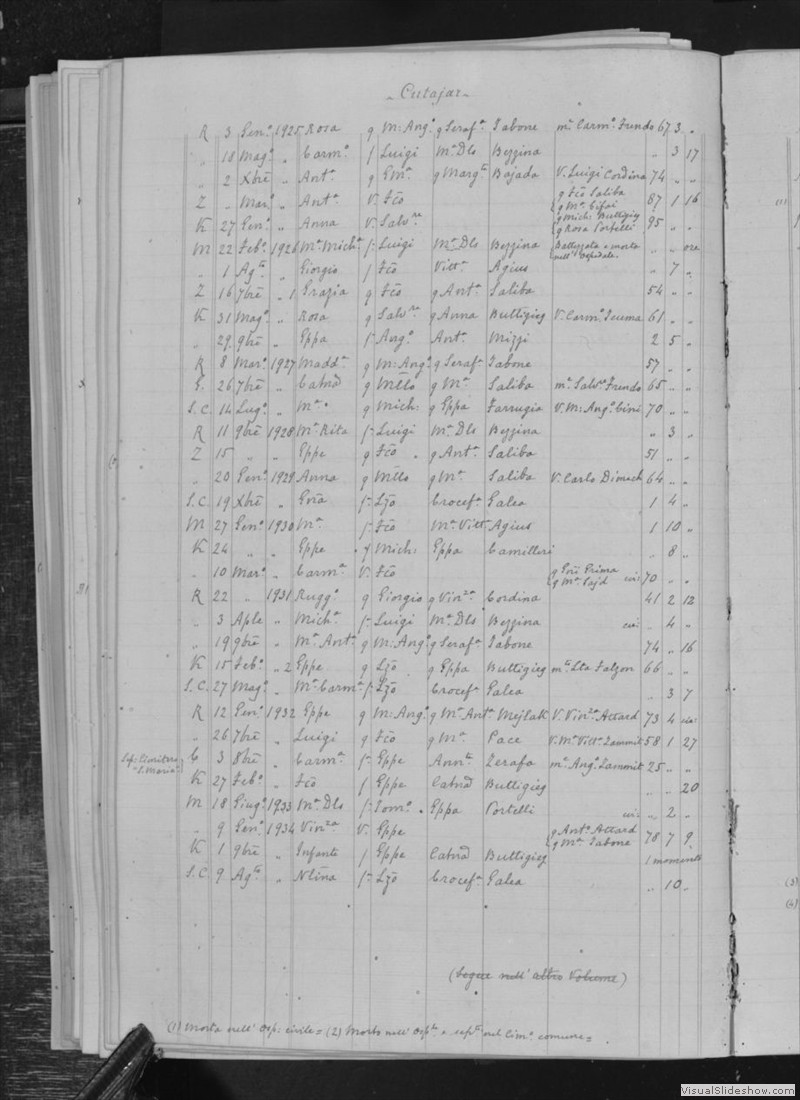 Cutajar
R 3 Gen.º 1925 Rosa q M: Ang.º q Seraf.ª Tabone m.ª Carm.º Fundo 67 3 "
" 18 Mag.º " Carm.º f- Luigi M.ª Dls Bezzina " 3 17
" 2 Xbrẽ " Ant.ª q Em.ª q Marg.ta Bajada V. Luigi Cordina 74 " "
Z " Mar.º " Ant.ª V. Fcõ { q Fcõ Saliba q M.ª 87 1 16
K 27 Gen.º " Anna V. Salv.re { q Mich: Buttigieg q Rosa Portelli 95 " "
M 22 Feb.º 1926 M.ª Mich.ª f- Luigi M.ª Dls Bezzina Battezzata e morta nell' Ospedale " " ore
" 1 Ag.to " Giorgio f Fcõ Vitt.ª Agius " 7 "
Z 16 7brẽ " Grazia q Fcõ q Ant.ª Saliba 54 " "
K 31 Mag.º " Rosa q Salv.re q Anna Buttigieg V. Carm.º 61 " "
" 29 9brẽ " Eppa f- Ang.º Ant.ª Mizzi 2 5 "
R 8 Mar.º 1927 Madd.ª q M: Ang.º q Seraf.ª Tabone 57 " "
26 7brẽ " Catnã q Mttõ q M.ª Saliba m.ª Salv.º Fundo 65 " "
S.C. 14 Lug.º " M.ª q Mich: q Eppa Farrugia V. M: Ang.º Cini 70 " "
R 11 9brẽ 1928 M.ª Rita f- Luigi M.ª Dls Bezzina " 3 "
Z 15 " " Eppe q Fcõ q Ant.ª Saliba 51 " "
" 20 Gen.º 1929 Anna q Mttõ q M.ª Saliba V. Carlo Dimech 64 " "
S.C. 19 Xbrẽ " f- Lzõ Crocef.ª Galea 1 4 "
M 27 Gen.º 1930 M.ª f- Fcõ M.ª Vitt.ª Agius 1 10 "
K 24 " " Eppe f Mich: Eppa Camilleri " 8 "
" 10 Mar.º " Carm.ª V. Fcõ { q M.ª Sajd civ: 70 " "
R 22 " 1931 Rugg.º q Giorgio q Vin.za Cordina 41 2 12
" 3 Aple " Mich.ª f- Luigi M.ª Dls Bezzina civ: " 4 "
" 19 9brẽ " M.ª Ant.ª q M: Ang.º q Seraf.ª Tabone 74 " 16
K 15 Feb.º " 2 Eppe q Lzõ q Eppa Buttigieg m.to Lta Falzon 66 " "
S.C. 27 Mag.º " M.ª Carm.ª f- Lzõ Crocef.ª Galea " 3 7
R 12 Gen.º 1932 Eppe q M: Ang.º q M.ª Ant.ª Mejlak V. Vin.za Attard 73 4
" 26 7brẽ " Luigi q Fcõ q M.ª Pace V. M.ª Vitt.ª Zammit 58 1 27
S. Maria C 3 8brẽ " Carm.ª f- Eppe Ann.ta Zerafa m.ª Ang.º Sammit 25 " "
K 27 Feb.º " Fcõ f Eppe Catnã Buttigieg " " 20
M 18 Giug.º 1933 M.ª Dls f- Tom.º Eppa Portelli civ: " 2 "
" 9 Gen.º 1934 Vin.za V. Eppe { q Ant.º Attard q M.ª Tabone 78 7 9
K 1 9brẽ " Infante f Eppe Catnã Buttigieg 1 momento
S.C. 9 Ag.to " Ntlina f- Lzõ Crocef.ª Galea " 10 "
(Segue nell' altro Volume)
(1) Morta nell' Osp: civile = (2) Morto nell' Osp.le e sep.to nel Cim.º comune =
(3)
(4)
VisualSlideshow.com